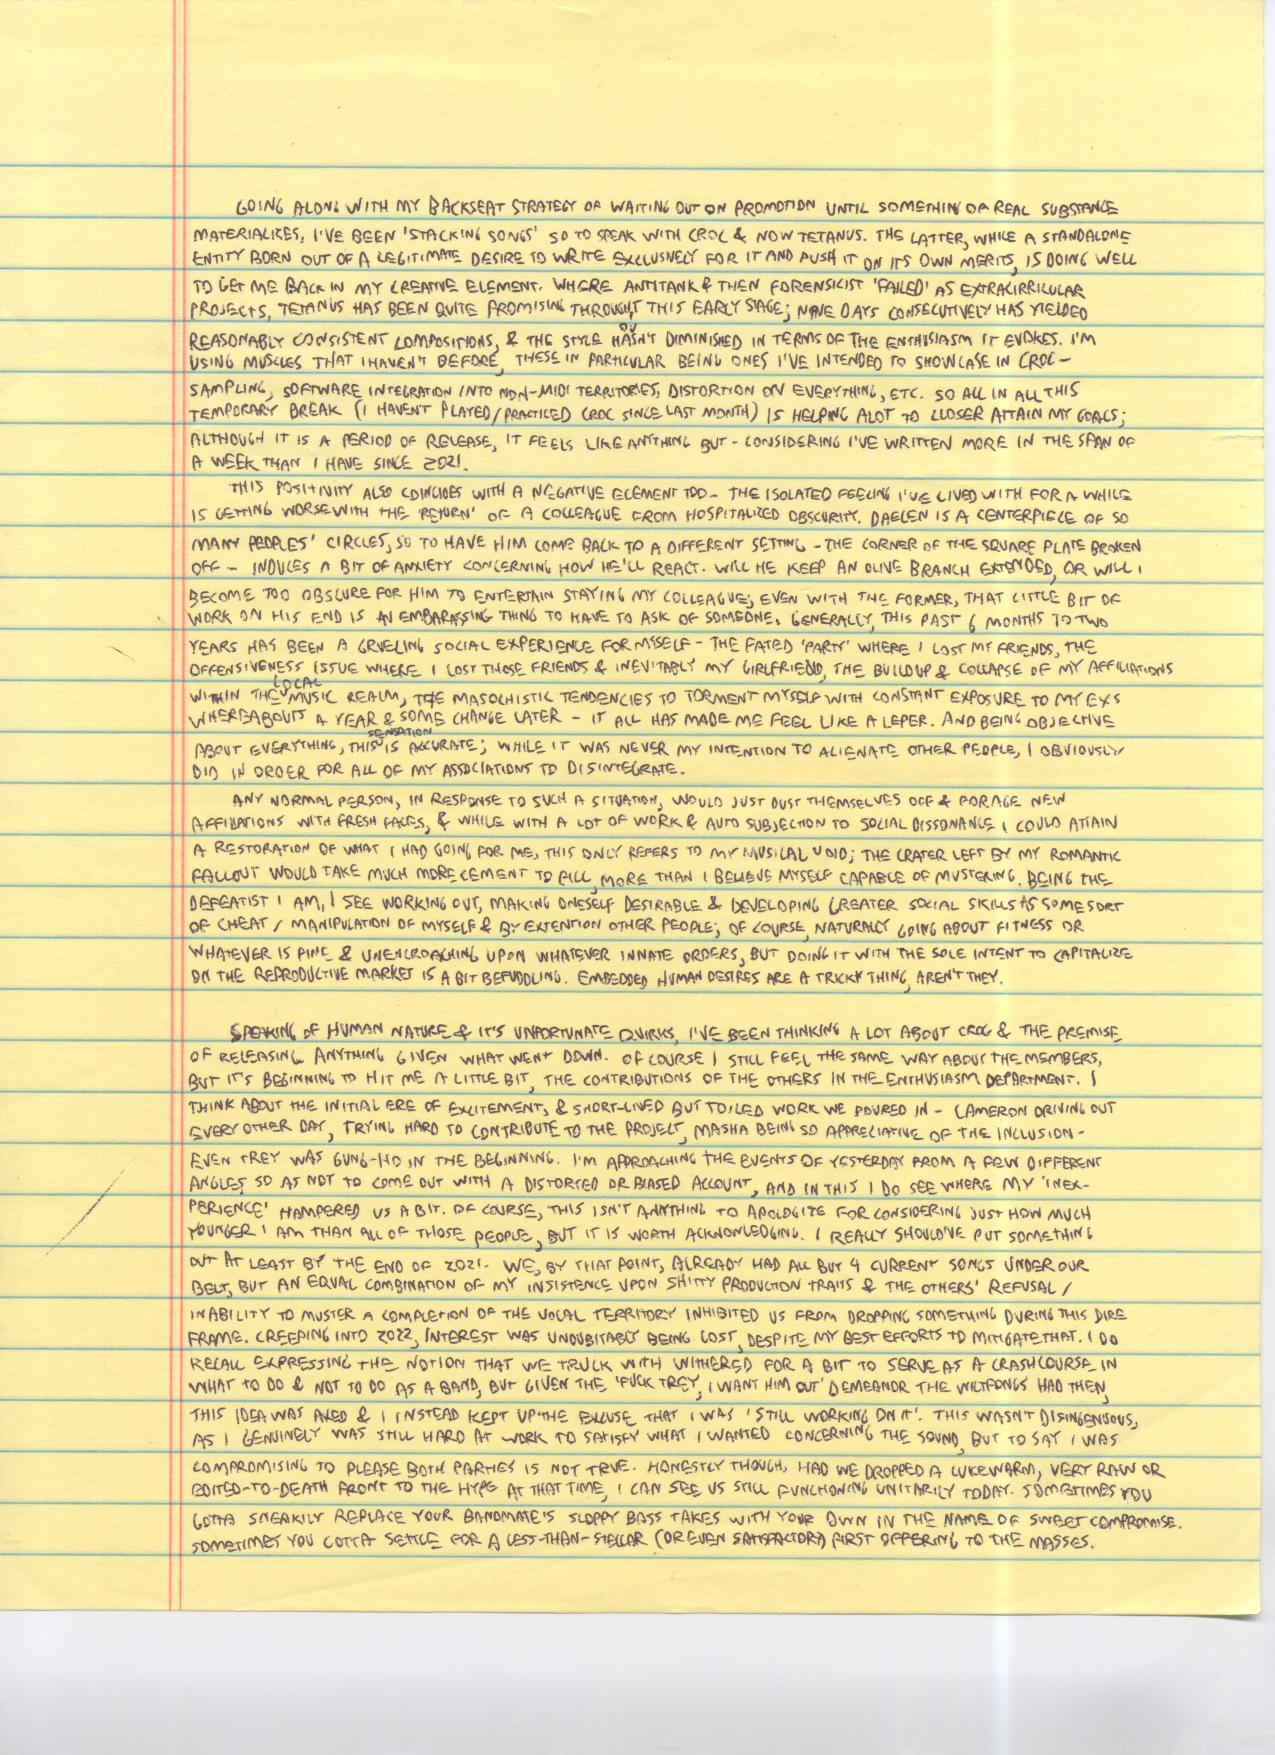 GOING ALONG WITH MY BACKSEAT STRATEGY OF WAITING OUT ON PROMOTION UNTIL SOMETHIN OF REAL SUBSTANCE
MATERIALIZES, I'VE BEEN 'STACKING SONGS' SO TO SPEAK WITH CROC & NOW TETANUS. THE LATTER, WHILE A STANDALONE
ENTITY BORN OUT OF A LEGITIMATE DESIRE TO WRITE EXCLUSIVELY FOR IT AND PUSH IT ON ITS OWN MERITS, IS DOING WELL
TO GET ME BACK IN MY CREATIVE ELEMENT. WHERE ANTITANK & THEN FORENSICIST 'FAILED' AS EXTRACIRRICULAR
PROJECTS, TETANUS HAS BEEN QUITE PROMISING THROUGHOUT THIS EARLY STAGE; NINE DAYS CONSECUTIVELY HAS YIELDED
REASONABLY CONSISTENT COMPOSITIONS, & THE STYLE HASN'T DIMINISHED IN TERMS OF THE ENTHUSIASM IT EVOKES. I'M
USING MUSCLES THAT I HAVEN'T BEFORE, THESE IN PARTICULAR BEING ONES I'VE INTENDED TO SHOWCASE IN CROC -
SAMPLING, SOFTWARE INTEGRATION INTO NON-MIDI TERRITORIES, DISTORTION ON EVERYTHING, ETC. SO ALL IN ALL THIS
TEMPORARY BREAK (I HAVEN'T PLAYED/PRACTICED CROC SINCE LAST MONTH) IS HELPING ALOT TO CLOSER ATTAIN MY GOALS;
ALTHOUGH IT IS A PERIOD OF RELEASE, IT FEELS LIKE ANYTHING BUT - CONSIDERING I'VE WRITTEN MORE IN THE SPAN OF
A WEEK THAN I HAVE SINCE 2021.
THIS POSITIVITY ALSO COINCIDES WITH A NEGATIVE ELEMENT TOO - THE ISOLATED FEELING I'VE LIVED WITH FOR A WHILE
IS GETTING WORSE WITH THE 'RETURN' OF A COLLEAGUE FROM HOSPITALIZED OBSCURITY. DAELEN IS A CENTERPIECE OF SO
MANY PEOPLES' CIRCLES, SO TO HAVE HIM COME BACK TO A DIFFERENT SETTING - THE CORNER OF THE SQUARE PLATE BROKEN
OFF - INDUCES A BIT OF ANXIETY CONCERNING HOW HE'LL REACT. WILL HE KEEP AN OLIVE BRANCH EXTENDED, OR WILL I
BECOME TOO OBSCURE FOR HIM TO ENTERTAIN STAYING MY COLLEAGUE; EVEN WITH THE FORMER, THAT LITTLE BIT OF
WORK ON HIS END IS AN EMBARASSING THING TO HAVE TO ASK OF SOMEONE. GENERALLY, THIS PAST 6 MONTHS TO TWO
YEARS HAS BEEN A GRUELING SOCIAL EXPERIENCE FOR MYSELF - THE FATED 'PARTY' WHERE I LOST MY FRIENDS, THE
OFFENSIVENESS ISSUE WHERE I LOST THOSE FRIENDS & INEVITABLY MY GIRLFRIEND, THE BUILDUP & COLLAPSE OF MY AFFILIATIONS
WITHIN THE LOCAL MUSIC REALM, THE MASOCHISTIC TENDENCIES TO TORMENT MYSELF WITH CONSTANT EXPOSURE TO MY EXS
WHEREABOUTS A YEAR & SOME CHANGE LATER - IT ALL HAS MADE ME FEEL LIKE A LEPER. AND BEING OBJECTIVE
ABOUT EVERYTHING, THIS SENSATION IS ACCURATE; WHILE IT WAS NEVER MY INTENTION TO ALIENATE OTHER PEOPLE, I OBVIOUSLY
DID IN ORDER FOR ALL OF MY ASSOCIATIONS TO DISINTEGRATE.
ANY NORMAL PERSON, IN RESPONSE TO SUCH A SITUATION, WOULD JUST DUST THEMSELVES OFF & FORAGE NEW
AFFILIATIONS WITH FRESH FACES, & WHILE WITH A LOT OF WORK & AUTO SUBJECTION TO SOCIAL DISSONANCE I COULD ATTAIN
A RESTORATION OF WHAT I HAD GOING FOR ME, THIS ONLY REFERS TO MY MUSICAL VOID; THE CRATER LEFT BY MY ROMANTIC
FALLOUT WOULD TAKE MUCH MORE CEMENT TO FILL, MORE THAN I BELIEVE MYSELF CAPABLE OF MUSTERING. BEING THE
DEFEATIST I AM, I SEE WORKING OUT, MAKING ONESELF DESIRABLE & DEVELOPING GREATER SOCIAL SKILLS AS SOME SORT
OF CHEAT / MANIPULATION OF MYSELF & BY EXTENTION OTHER PEOPLE; OF COURSE, NATURALLY GOING ABOUT FITNESS OR
WHATEVER IS FINE & UNENCROACHING UPON WHATEVER INNATE ORDERS, BUT DOING IT WITH THE SOLE INTENT TO CAPITALIZE
ON THE REPRODUCTIVE MARKET IS A BIT BEFUDDLING. EMBEDDED HUMAN DESIRES ARE A TRICKY THING, AREN'T THEY.
SPEAKING OF HUMAN NATURE & IT'S UNFORTUNATE QUIRKS, I'VE BEEN THINKING A LOT ABOUT CROC & THE PREMISE
OF RELEASING ANYTHING GIVEN WHAT WENT DOWN. OF COURSE I STILL FEEL THE SAME WAY ABOUT THE MEMBERS,
BUT IT'S BEGINNING TO HIT ME A LITTLE BIT, THE CONTRIBUTIONS OF THE OTHERS IN THE ENTHUSIASM DEPARTMENT. I
THINK ABOUT THE INITIAL ERE OF EXCITEMENT, & SHORT-LIVED BUT TOILED WORK WE POURED IN - CAMERON DRIVING OUT
EVERY OTHER DAY, TRYING HARD TO CONTRIBUTE TO THE PROJECT, MASHA BEING SO APPRECIATIVE OF THE INCLUSION -
EVEN TREY WAS GUNG-HO IN THE BEGINNING. I'M APPROACHING THE EVENTS OF YESTERDAY FROM A FEW DIFFERENT
ANGLES, SO AS NOT TO COME OUT WITH A DISTORTED OR BIASED ACCOUNT, AND IN THIS I DO SEE WHERE MY 'INEX-
PERIENCE' HAMPERED US A BIT. OF COURSE, THIS ISN'T ANYTHING TO APOLOGIZE FOR CONSIDERING JUST HOW MUCH
YOUNGER I AM THAN ALL OF THOSE PEOPLE, BUT IT IS WORTH ACKNOWLEDGING. I REALLY SHOULD'VE PUT SOMETHING
OUT AT LEAST BY THE END OF 2021. WE, BY THAT POINT, ALREADY HAD ALL BUT 4 CURRENT SONGS UNDER OUR
BELT, BUT AN EQUAL COMBINATION OF MY INSISTENCE UPON SHITTY PRODUCTION TRAITS & THE OTHERS' REFUSAL /
INABILITY TO MUSTER A COMPLETION OF THE VOCAL TERRITORY INHIBITED US FROM DROPPING SOMETHING DURING THIS DIRE
FRAME. CREEPING INTO 2022, INTEREST WAS UNDUBITABLY BEING LOST, DESPITE MY BEST EFFORTS TO MITIGATE THAT. I DO
RECALL EXPRESSING THE NOTION THAT WE TRUCK WITH WITHERED FOR A BIT TO SERVE AS A CRASH COURSE IN
WHAT TO DO & NOT TO DO AS A BAND, BUT GIVEN THE 'FUCK TREY, I WANT HIM OUT' DEMEANOR THE WILTFONGS HAD THEN,
THIS IDEA WAS AXED & I INSTEAD KEPT UP THE EXCUSE THAT I WAS 'STILL WORKING ON IT'. THIS WASN'T DISINGENUOUS,
AS I GENUINELY WAS STILL HARD AT WORK TO SATISFY WHAT I WANTED CONCERNING THE SOUND, BUT TO SAY I WAS
COMPROMISING TO PLEASE BOTH PARTIES IS NOT TRUE. HONESTLY THOUGH, HAD WE DROPPED A LUKEWARM, VERY RAW OR
EDITED-TO-DEATH FRONT TO THE HYPE AT THAT TIME, I CAN SEE US STILL FUNCTIONING UNITARILY TODAY. SOMETIMES YOU
GOTTA SNEAKILY REPLACE YOUR BANDMATE'S SLOPPY BASS TAKES WITH YOUR OWN IN THE NAME OF SWEET COMPROMISE.
SOMETIMES YOU GOTTA SETTLE FOR A LESS-THAN-STELLAR (OR EVEN SATISFACTORY) FIRST OFFERING TO THE MASSES.